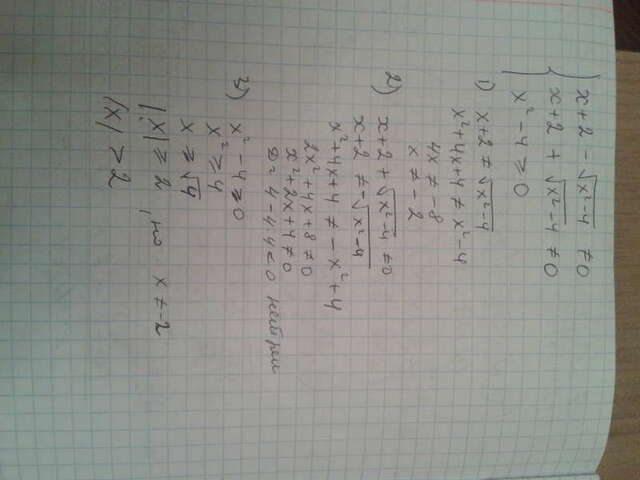 x + 2 - √x²-4 ≠ 0
x + 2 + √x²-4 ≠ 0
x² - 4 ≥ 0
1) x + 2 ≠ √x²-4
x² + 4x + 4 ≠ x² - 4
4x ≠ -8
x ≠ -2
2) x + 2 + √x²-4 ≠ 0
x + 2 ≠ -√x²-4
x² + 4x + 4 ≠ -x² + 4
2x² + 4x + 8 ≠ 0
x² + 2x + 4 ≠ 0
D = 4 - 4·4 < 0 нет реш
3) x² - 4 ≥ 0
x² ≥ 4
x ≥ √4
|x| ≥ 2, но x ≠ -2
|x| > 2